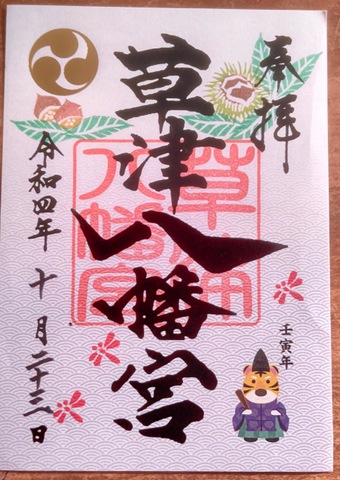 奉拝
草津八幡宮
草津八幡宮
壬寅年
令和四年 十月二十三日